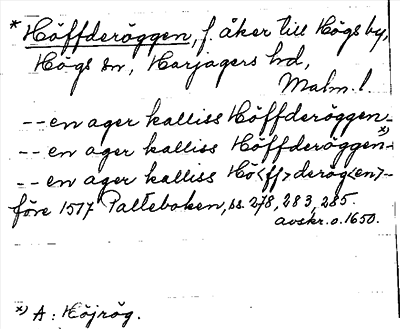 * Höffderöggen, f. åker till Högs by,
Högs sn, Harjagers hd,
Malm. l.
-- en ager kalliss Höffderöggen --
-- en ager kalliss Höffderöggen x) --
-- en ager kalliss Hö<ff>derög<en> --
före 1517 Palteboken, ss. 278, 283, 285.
avskr. o. 1650.
x) A: Höjrög.